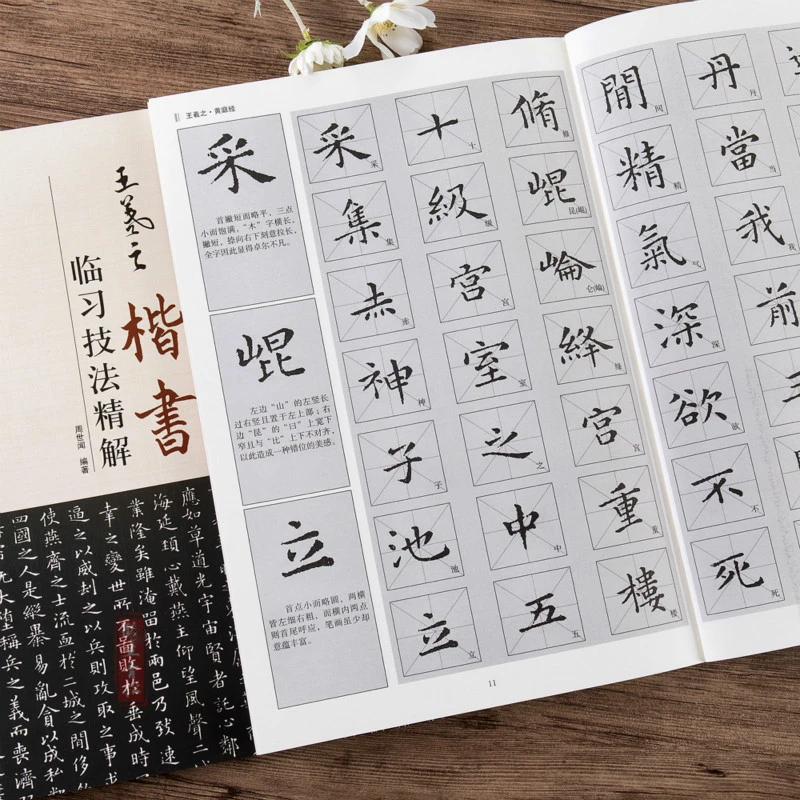 王羲之
楷書
临习技法精解
周世闻 编著
應如草道光宇宙賢者託心鄰
海延頸心戴燕主仰望風聲二
業隆矣雖淹留於兩邑乃致速
幸之變世所不圖敗於垂成時
逼之以威劫之以兵則攻取之事求
使燕齊之士流血於二城之間侈
四國之人是縱暴易亂貪以成私
大墮稱兵之義而喪濟
王羲之·黄庭经
采
首撇短而略平，三点
小而饱满，“木”字横长，
撇短，捺向右下刻意拉长，
全字因此显得卓尔不凡。
崐
左边“山”的左竖长
过右竖且置于左上部；右
边“昆”的“曰”上宽下
窄且与“比”上下不对齐，
以此造成一种错位的美感。
立
首点小而略圆，两横
皆左细右粗，而横内两点
则首尾呼应，笔画虽少却
意蕴丰富。
脩 修
崐 昆(崐)
崘 仑(崘)
絳 绛
宮 宫
重 重
樓 楼
十 十
級 级
宮 宫
室 室
之 之
中 中
五 五
采 采
集 集
赤 赤
神 神
子 子
池 池
立 立
11
丹 丹
當 当
我 我
前
閒 间
精 精
氣 气
深 深
欲 欲
不 不
死 死